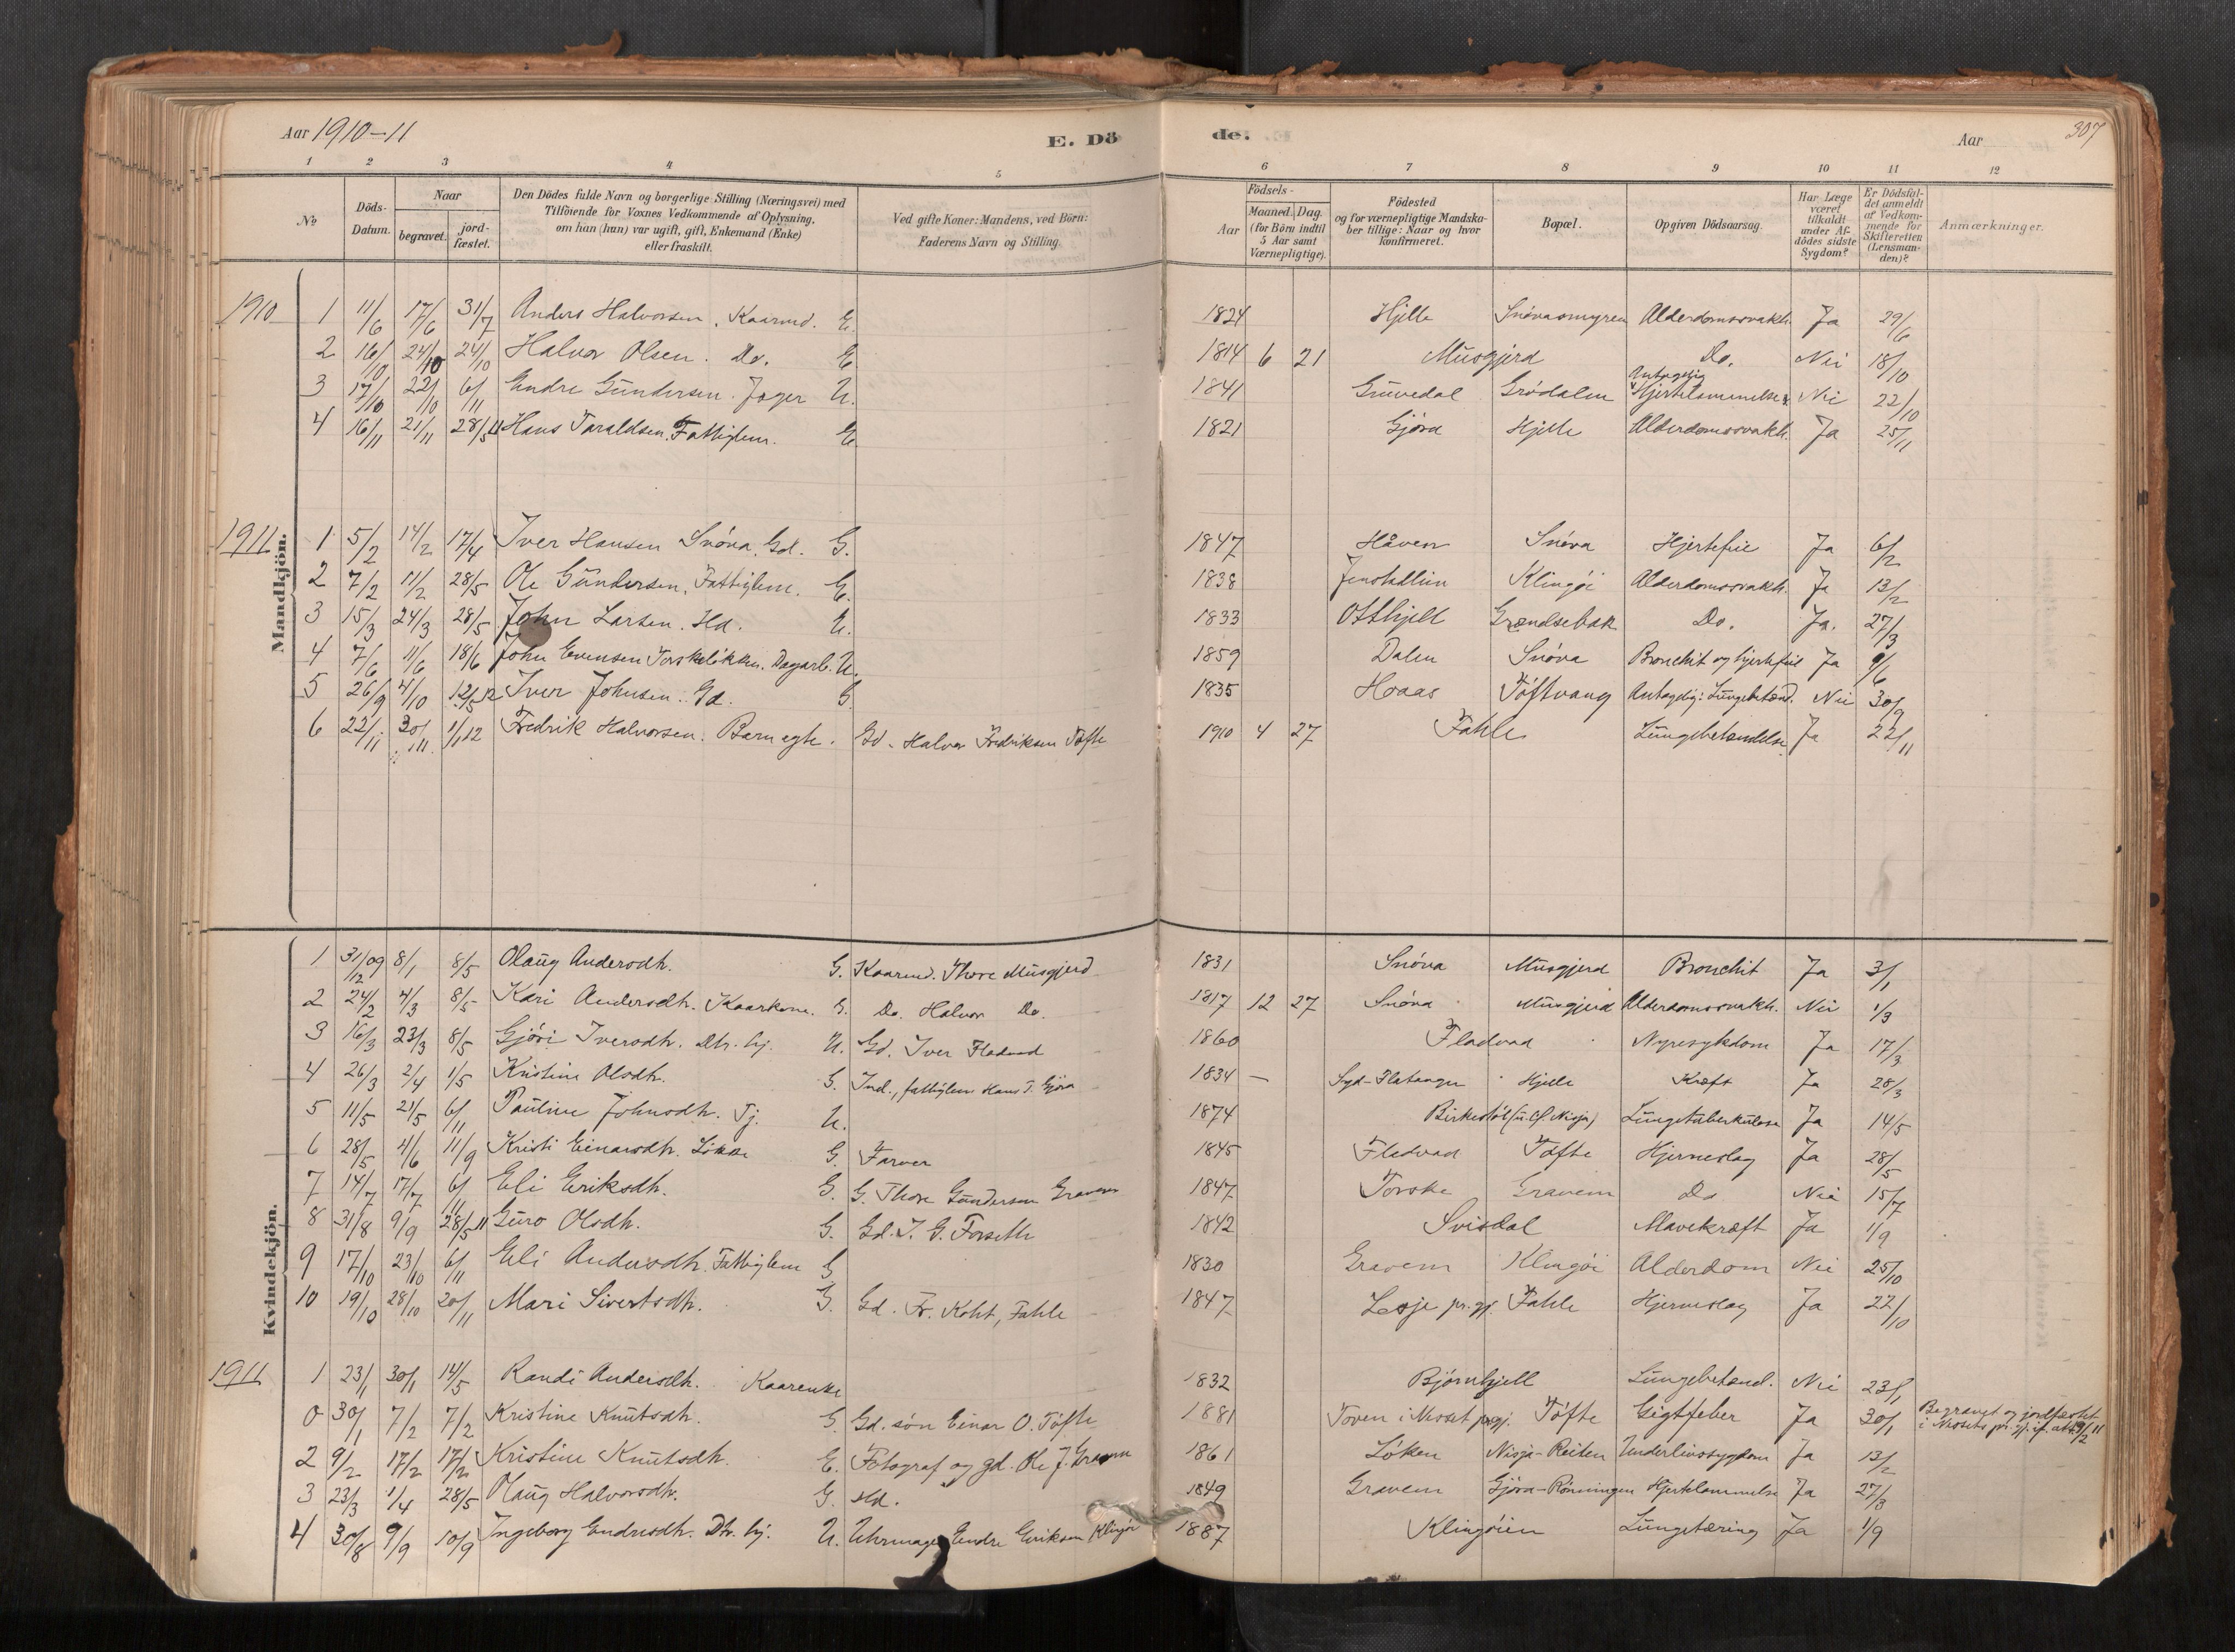 Aar 1910-11 E. Dö de. Aar 307
1 2 3 4 5 6 7 8 9 10 11 12
No
Döds-Datum.
Naar
begravet.
jord-fæstet.
Den Dödes fulde Navn og borgerlige Stilling (Næringsvei) med
Tilföiende for Voxnes Vedkommende af Oplysning,
om han (hun) var ugift, gift, Enkemand (Enke)
eller fraskilt.
Ved gifte Koner: Mandens, ved Börn:
Faderens Navn og Stilling.
Födsels-
Aar
Maaned. Dag.
(for Börn indtil
5 Aar samt
Værnepligtige).
Födested
og for værnepligtige Mandska-
ber tillige: Naar og hvor
konfirmeret.
Bopæl.
Opgiven Dödsaarsag.
Har Læge
været
tilkaldt
under Af-
dödes sidste
Sygdom?
Er Dödsfal-
det anmeldt
af Vedkom-
mende for
Skifteretten
(Lensman-
den)?
Anmærkninger.
Mandkjön.
1910 1 11/6 17/6 31/7 Anders Halvorsen. Kaarmd. E. 1824 Hjelle Snóvasmyren Alderdomssvakh. Ja 29/6
2 16/10 24/10 24/10 Halvor Olsen. Do. E 1814 6 21 Musgjerd Do. Nei 18/10
3 17/10 22/10 6/11 Endre Gundersen. Jæger U. 1841 Gruvedal Grödalen Antagelig Hjertelammelse Nei 22/10
4 16/11 21/11 28/5 11 Hans Taraldsen. Fattiglem. E 1821 Gjöra Hjelle Alderdomssvakh. Ja 25/11
1911 1 5/2 14/2 17/4 Iver Hansen Snóva. Gd. G. 1847 Håven Snóva Hjertefeil Ja 6/2
2 7/2 11/2 28/5 Ole Gundersen. Fattiglem. E. 1838 Jenstadlien Klingói Alderdomssvakh. Ja 13/2
3 15/3 24/3 28/5 John Larsen. Hd. U. 1833 Otthjell Grændsebak Do. Ja. 27/3
4 7/6 11/6 18/6 John Evensen Torskelökken. Dagarb. U. 1859 Dalen Snóva Bronchit og hjertefeil Ja 9/6
5 26/9 4/10 12/5 12 Iver Johnsen. Gd. G. 1835 Hoaas Tóftvang Antagelig: Lungebetænd. Nei 30/9
6 22/11 30/11 1/1 12 Fredrik Halvorsen. Barn ægte. Gd. Halvor Fredriksen Tófte 1910 4 27 Fahle Lungebetændelse Ja 22/11
Kvindekjön.
1 31/12 09 8/1 8/5 Olaug Andersdh. G. Kaarmd. Thore Musgjerd 1831 Snóva Musgjerd Bronchit Ja 3/1
2 24/2 4/3 8/5 Kari Andersdh. Kaarkone. G. Do. Halvor Do. 1817 12 27 Snóva Musgjerd Alderdomssvakh. Nei 1/3
3 16/3 23/3 8/5 Gjóri Iversdh. Dtr. hj. U. Gd. Iver Fladvad 1860 Fladvad Nyresykdom Ja 17/3
4 26/3 2/4 1/5 Kristine Olsdh. G. Ind., fattiglem Hans T. Gjöra 1834 — Syd-Flatanger Hjelle Kræft Ja 28/3
5 11/5 21/5 6/11 Pauline Johnsdh. Tj. U. 1874 Birkestól (u. Nisja) Lungetuberkulose Ja 14/5
6 28/5 4/6 11/9 Kristi Einarsdh. Lökke G. Farver 1845 Fladvad Tófte Hjerneslag Ja 28/5
7 14/7 17/7 6/11 Eli Eriksdh. G. G. Thore Gundersen Gravem 1847 Torske Gravem Do Nei 15/7
8 31/8 9/9 28/5 11 Guro Olsdh. G. Gd. I. G. Forseth 1842 Svisdal Mavekræft Ja 1/9
9 17/10 23/10 6/11 Eli Andersdh. Fattiglem G 1830 Gravem Klingói Alderdom Nei 25/10
10 19/10 28/10 20/11 Mari Sivertsdh. G. Gd. Fr. Koht, Fahle 1847 Lesje pr.gj. Fahle Hjerneslag Ja 22/10
1911 1 23/1 30/1 14/5 Randi Andersdh. Kaarenke 1832 Bjórnhjell Lungebetænd. Nei 23/1
0 30/1 7/2 7/2 Kristine Knutsdh. G. Gd. sön Einar O. Tófte 1881 Toven i Nesset prgj. Tófte Gigtfeber Ja 30/1 Begravet og jordfæstet
i Nessets pr.gj. if. att. 19/2 11
2 9/2 17/2 17/2 Kristine Knutsdh. E. Fotograf og gd. Ole J. Gravem 1861 Lóken Nisja-Reiten Underlivssygdom Ja 13/2
3 23/3 1/4 28/5 Olaug Halvorsdh. G. Hd. 1849 Gravem Gjöra-Rönningen Hjertelammelse Ja 27/3
4 30/8 9/9 10/9 Ingeborg Endresdh. Dtr. hj. U. Uhrmager Endre Eriksen Klingói 1887 Klingóien Lungetæring Ja 1/9